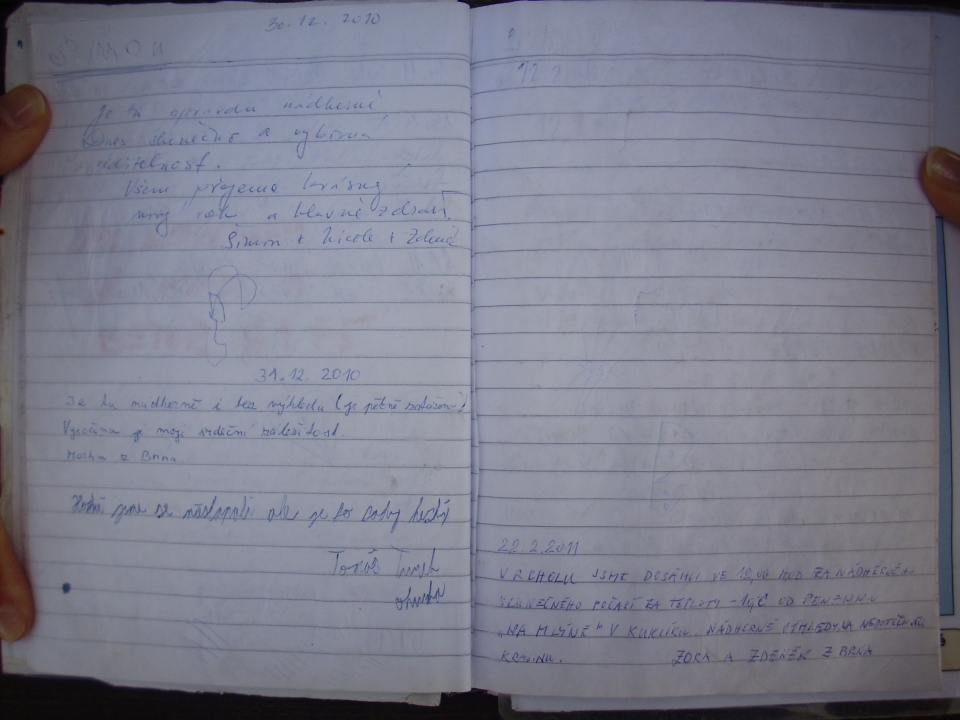 30.12.2010
Je tu opravdu nádherně
Dnes slunečně a výborná
viditelnost.
Všem přejeme krásný
nový rok a hlavně zdraví.
Simon + Nicole +
31.12.2010
Je tu nádherně i bez výhledu (je pěkně zataženo)
Vysočina je moji srdeční záležitost.
z Brna
jsme se našlapali ale je to
Tomáš
22.2.2011
VRCHOLU JSME DOSÁHLI VE HOD ZA NÁDHERNÉHO
SLUNEČNÉHO POČASÍ ZA TEPLOTY -14°C OD PENZIONU
„NA MLÝNĚ" V KUKLÍKU. NÁDHERNÉ VÝHLEDY NA
KRAJINU. ZORA A ZDENĚK Z BRNA